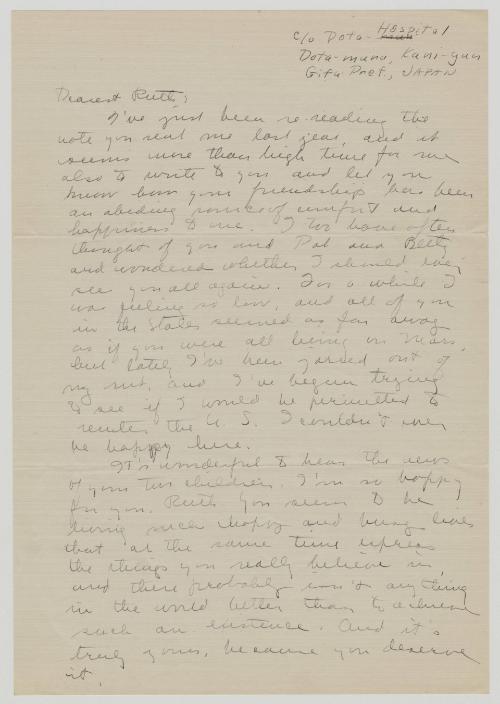 c/o Dota- Hospital
Dota-mura, Kani-gun
Gifu Pref., JAPAN
Dearest Ruth,
I've just been re-reading the
note you sent me last year, and it
seems more than high time for me
also to write to you and let you
know how your friendship has been
an abiding source of comfort and
happiness to me. I too have often
thought of you and Pat and Betty
and wondered whether I should ever
see you all again. For a while I
was feeling so low, and all of you
in the States seemed as far away
as if you were all living on Mars,
but lately I've been jarred out of
my rut, and I've begun trying
to see if I would be permitted to
reenter the U.S. I couldn't ever
be happy here.
It's wonderful to hear the news
of your two children. I'm so happy
for you, Ruth. You seem to be
living such happy and busy lives
that at the same time express
the things you really believe in,
and there probably isn't anything
in the world better than to achieve
such an existence. And it's
truly yours, because you deserve
it.